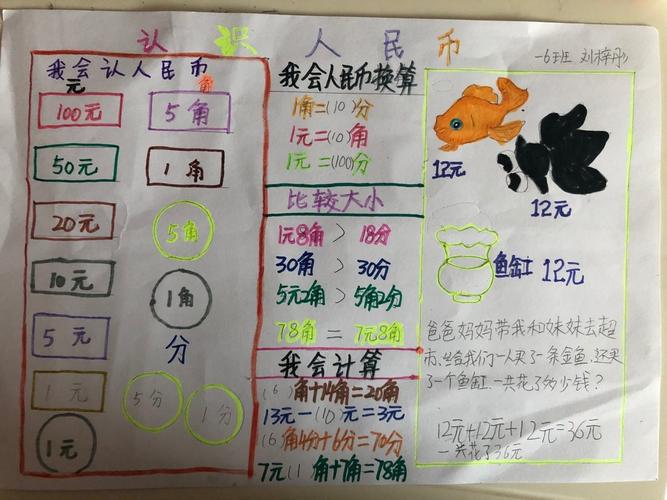 认识人民币
一6班 刘梓彤
我会认人民币
元 角
100元 5角
50元 1角
20元 5角
10元 1角
5元 分
1元 5分 1分
1元
我会人民币换算
1角=(10)分
1元=(10)角
1元=(100)分
比较大小
1元8角 > 18分
30角 > 30分
5元2角 > 5角2分
78角 = 7元8角
我会计算
(6)角+14角=20角
13元-(10)元=3元
(6角4分+6分=70分
7元(1 角+7角=78角
12元
12元
鱼缸 12元
爸爸妈妈带我和妹妹去超
市,给我们一人买了一条金鱼,还买
了一个鱼缸,一共花了多少钱?
12元+12元+12元=36元
一共花了36元